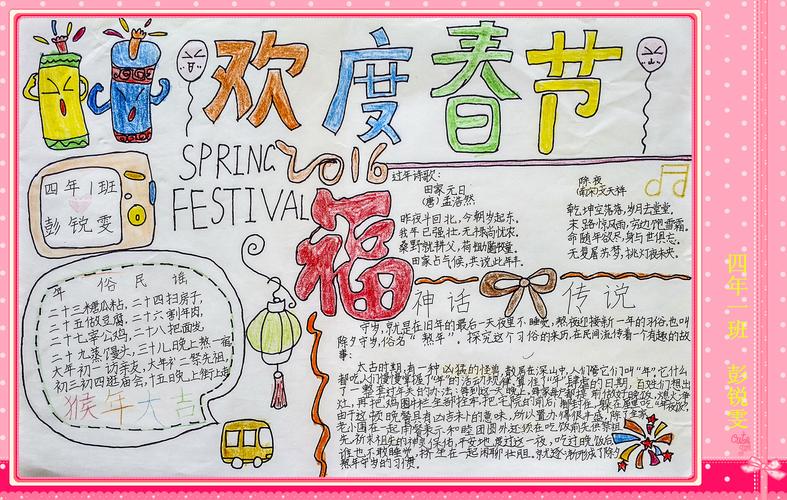 欢度春节
SPRING 2016
FESTIVAL
福
四年1班
彭锐雯
过年诗歌:
田家元日
(唐)孟浩然
昨夜斗回北,今朝岁起东。
我年已强壮,无禄尚忧农。
桑野就耕父,荷锄随牧童。
田家占气候,共说此年丰。
除夜
(南宋)文天祥
乾坤空落落,岁月去堂堂。
末路惊风雨,穷边饱雪霜。
命随年欲尽,身与世俱忘。
无复屠苏梦,挑灯夜未央。
年俗民谣
二十三糖瓜粘,二十四扫房子,
二十五做豆腐,二十六割年肉,
二十七宰公鸡,二十八把面发,
二十九蒸馒头,三十儿晚上熬一宿
大年初一访亲友,大年初二祭先祖,
初三初四逛庙会,十五晚上街上
猴年大吉
神话传说
守岁,就是在旧年的最后一天夜里不睡觉,熬夜迎接新一年的习俗,也叫
除夕守岁,俗名“熬年”。探究这个习俗的来历,在民间流传着一个有趣的故
事:
太古时期,有一种凶猛的怪兽,散居在深山中,人们管它们叫“年”。它什么
都吃,人们慢慢掌握了“年”的活动规律,算准了“年”肆虐的日期,百姓们想出
了一整套过年关的办法:每到这一天晚上,每家每户都提前做好晚饭,熄火净
灶,再把鸡圈牛栏全部拴牢,把宅院的前后门都封住,躲在屋里吃“年夜饭”,
由于这顿晚餐具有凶吉未卜的意味,所以置办得很丰盛,除了全家
老小围在一起用餐表示和睦团圆外,还须在吃饭前先供祭祖
先,祈求祖先的神灵保佑,平安地度过这一夜,吃过晚饭后,
谁也不敢睡觉,挤坐在一起闲聊壮胆。就逐渐形成了除夕
熬年守岁的习惯。
四年一班 彭锐雯